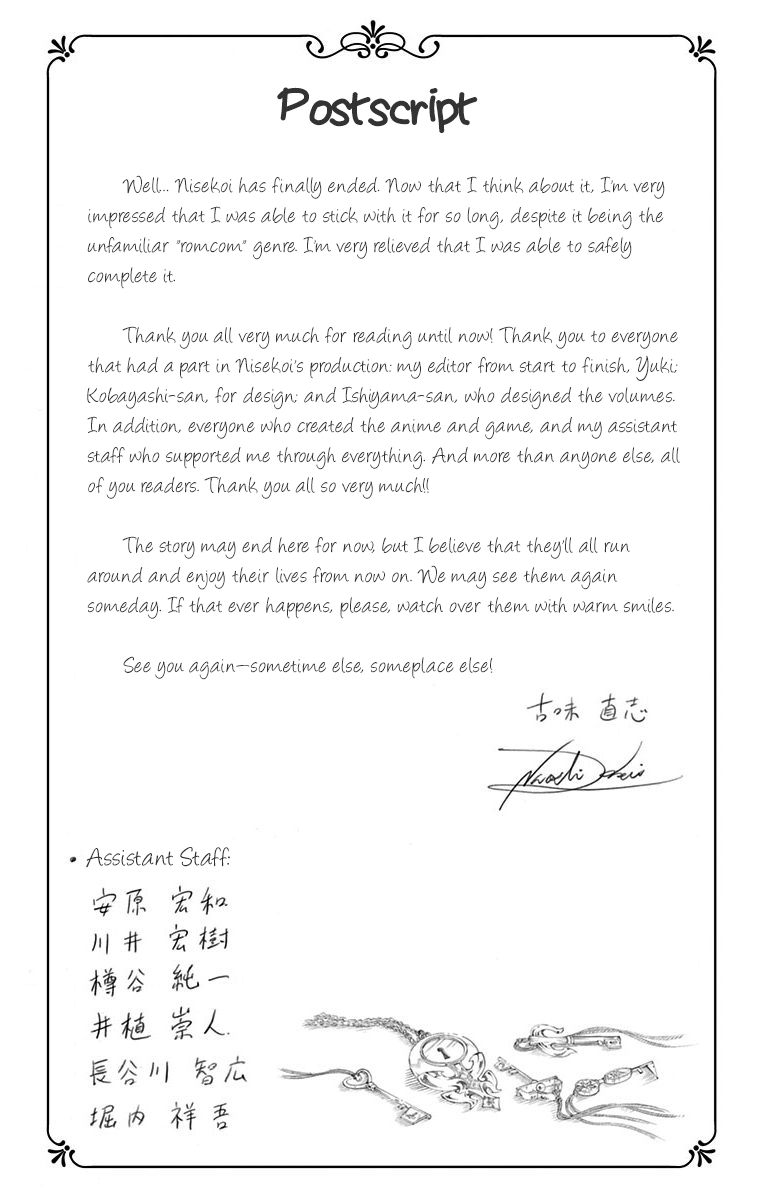 Postscript
Well... Nisekoi has finally ended. Now that I think about it, I'm very
impressed that I was able to stick with it for so long, despite it being the
unfamiliar "romcom" genre. I'm very relieved that I was able to safely
complete it.
Thank you all very much for reading until now! Thank you to everyone
that had a part in Nisekoi's production: my editor from start to finish, Yuki;
Kobayashi-san, for design; and Ishiyama-san, who designed the volumes.
In addition, everyone who created the anime and game, and my assistant
staff who supported me through everything. And more than anyone else, all
of you readers. Thank you all so very much!!
The story may end here for now, but I believe that they'll all run
around and enjoy their lives from now on. We may see them again
someday. If that ever happens, please, watch over them with warm smiles.
See you again—sometime else, someplace else!
古味 直志
Naoshi Komi
• Assistant Staff:
安原 宏和
川井 宏樹
樽谷 純一
井植 崇人.
長谷川 智広
堀内 祥吾